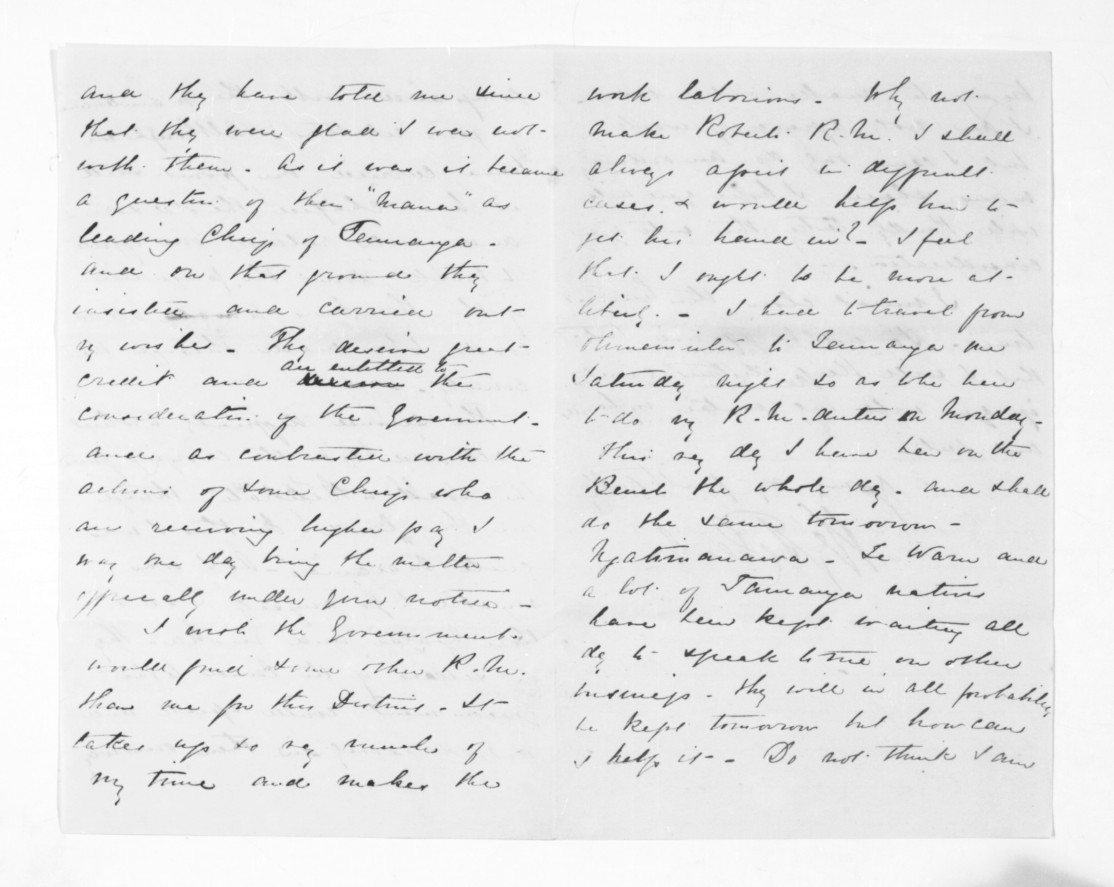 and they have told me since
that they were glad I was not
with them. As it was it became
a question of their "Mana" as
leading Chiefs of Tauranga -
and on that ground they
insisted and carried out
my wishes - They deserve great
credit and are entitled to the
consideration of the Government -
and as contrasted with the
actions of some Chiefs who
are receiving higher pay I
may one day bring the matter
officially under your notice -
I wish the Government
would find some other R.M.
than me for this District - It
takes up so very much of
my time and makes the
work laborious - Why not
make Roberts R.M. I shall
always assist in difficult
cases & would help him to
get his hand in? - I feel
that I ought to be more at
liberty. - I had to travel from
Ohinemutu to Tauranga one
Saturday night so as to be here
to do my R.M. duties on Monday -
This very day I have been on the
Bench the whole day - and shall
do the same tomorrow -
Ngatimanawa - Te Waru and
a lot of Tauranga natives
have been kept waiting all
day to speak to me on other
business - they will in all probability
be kept tomorrow but how can
I help it - Do not think I am